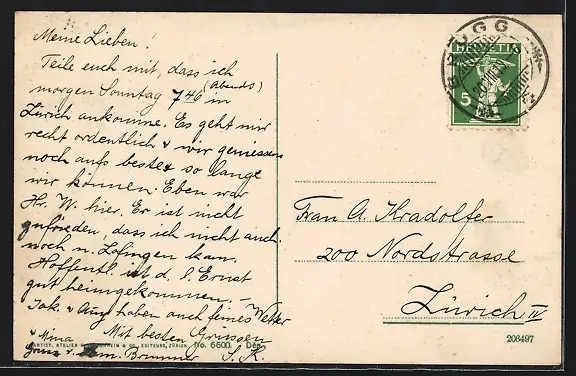 Meine Lieben!
Teile euch mit, dass ich
morgen Sonntag 7 46 (Abends) in
Zürich ankomme. Es geht mir
recht ordentlich & wir geniessen
noch aufs beste so lange
wir können. Eben war
Hr. W. hier. Er ist nicht
zufrieden, dass ich nicht auch
noch n. Zofingen kam.
Hoffentl. ist d. l. Ernst
gut heimgekommen. –
Jak. & Aug. haben auch feines Wetter
& Mina Mit besten Grüssen
Gruss v. Fam. Brunner S. K.
ARTIST. ATELIER & CO. EDITEURS, ZÜRICH No. 6600. Dep.
BRUGG
HELVETIA
5
Frau A. Kradolfer
200 Nordstrasse
Zürich IV
206497